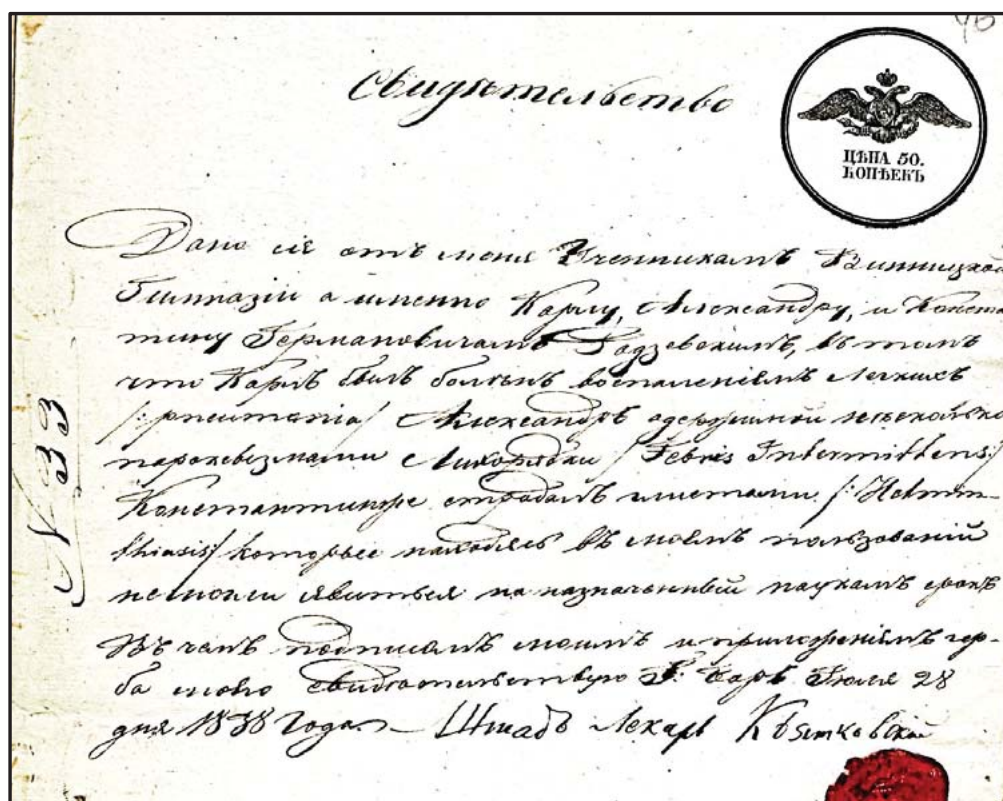 Свидѣтельство
ЦѢНА 50.
КОПѢЕКЪ
N 33
Дано сіе отъ меня Ученикамъ Винницкой
Гимназіи а именно Карлу, Александру, и Конста
тину Германовичамъ Годзевскимъ, въ томъ
что Карлъ былъ боленъ воспаленіемъ легкихъ
/:pneumania/ Александръ одержимой нѣсколько
пароксизмами Лихорадки /Febris Intermittens:/
Константинже страдалъ глистами /:Helmin-
thiasis/ которые находясь въ моемъ пользованіи
немогли явиться на назначенный наукамъ срокъ
Въ чемъ подписомъ моимъ и приложеніемъ гер-
ба моего свидѣтельствую Іюля 28
дня 1838 года. — Штабъ Лекарь Квятковскій